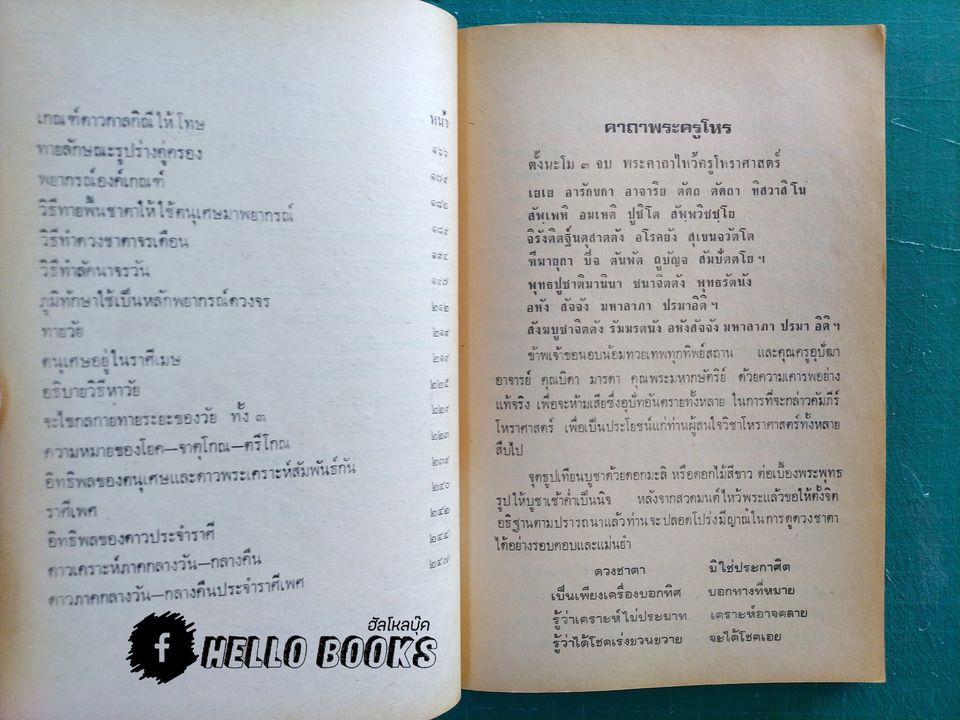 หน้า
เกณฑ์ดาวกาลกิณีให้โทษ ๑๖๖
ทายลักษณะรูปร่างคู่ครอง ๑๗๙
พยากรณ์องค์เกณฑ์ ๑๘๒
วิธีทายพื้นชาตาให้ใช้ตนุเศษมาพยากรณ์ ๑๘๙
วิธีทำดวงชาตาจรเดือน ๑๙๔
วิธีทำลัคนาจรวัน ๑๙๗
ภูมิทักษาใช้เป็นหลักพยากรณ์ดวงจร ๒๑๒
ทายวัย ๒๑๙
ตนุเศษอยู่ในราศีเมษ ๒๑๙
อธิบายวิธีหาวัย ๒๒๕
จะไขกลกายทายระยะของวัย ทั้ง ๓ ๒๒๙
ความหมายของโยค—จาตุโกณ—ตรีโกณ ๒๒๓
อิทธิพลของตนุเศษและดาวพระเคราะห์สัมพันธ์กัน ๒๓๙
ราศีเพศ ๒๔๐
อิทธิพลของดาวประจำราศี ๒๔๒
ดาวเคราะห์ภาคกลางวัน—กลางคืน ๒๔๔
ดาวภาคกลางวัน—กลางคืนประจำราศีเพศ ๒๔๗
ฮัลโหลบุ๊ค
f HELLO BOOKS
คาถาพระครูโหร
ตั้งนะโม ๓ จบ พระคาถาไหว้ครูโหราศาสตร์
เยเย อารักขกา อาจาริย ตัตถ ตัตถา ทิสวาสิโน
สัพฺเพหิ อมเหติ ปูชิโต สัพฺพวิชชฺโย
จิรังติตฐ์นตุสาตตัง อโรคยัง สุเขนจวัตโต
ทีฆายุกา ปัจ ตันพัต ถูบัญจ สัมปัตตโย ฯ
พุทธปูชาติมานินา ชนาจิตตัง พุทธรัตนัง
อหัง สัจจัง มหาลาภา ปรมาอิติ ฯ
สังฆบูชาจิตตัง รัมมรตนัง อหังสัจจัง มหาลาภา ปรมา อิติ ฯ
ข้าพเจ้าขอนอบน้อมทวยเทพทุกทิพย์สถาน และคุณครูอุปัฌา
อาจารย์ คุณบิดา มารดา คุณพระมหากษัตริย์ ด้วยความเคารพอย่าง
แท้จริง เพื่อจะห้ามเสียซึ่งอุบัทอันตรายทั้งหลาย ในการที่จะกล่าวคัมภีร์
โหราศาสตร์ เพื่อเป็นประโยชน์แก่ท่านผู้สนใจวิชาโหราศาสตร์ทั้งหลาย
สืบไป
จุดธูปเทียนบูชาด้วยดอกมะลิ หรือดอกไม้สีขาว ต่อเบื้องพระพุทธ
รูปให้บูชาเช้าค่ำเป็นนิจ หลังจากสวดมนต์ไหว้พระแล้วขอให้ตั้งจิต
อธิฐานตามปรารถนาแล้วท่านจะปลอดโปร่งมีญาณในการดูดวงชาตา
ได้อย่างรอบคอบและแม่นยำ
ดวงชาตา มิใช่ประกาศิต
เป็นเพียงเครื่องบอกทิศ บอกทางที่หมาย
รู้ว่าเคราะห์ไม่ประมาท เคราะห์อาจคลาย
รู้ว่าได้โชคเร่งขวนขวาย จะได้โชคเอย